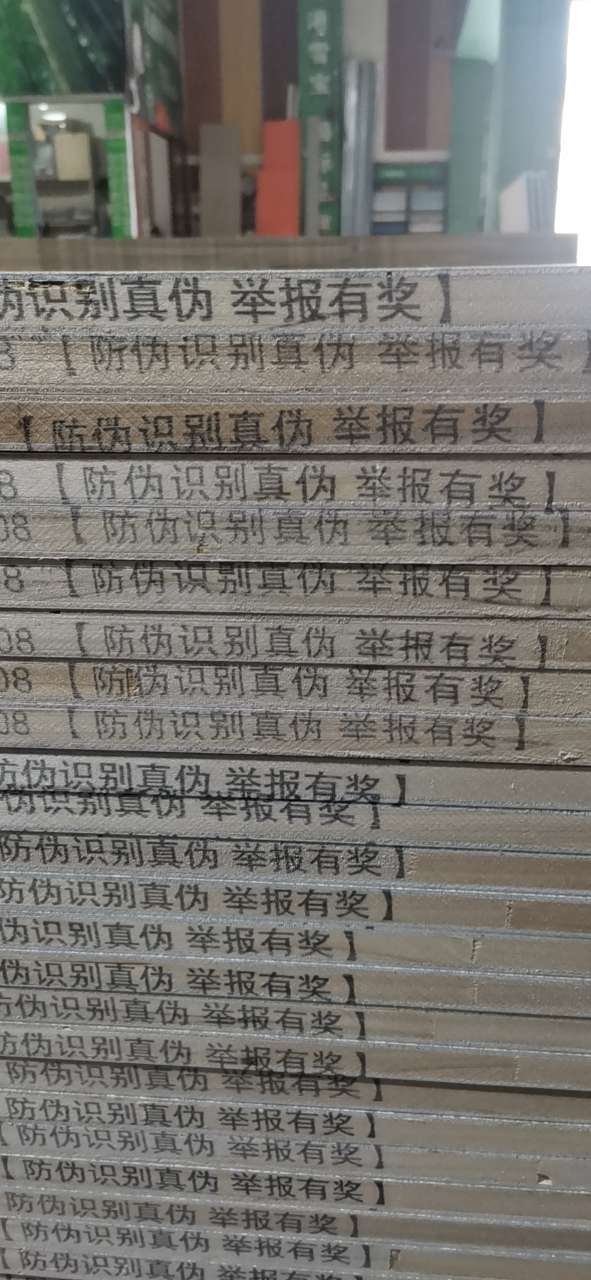 伪识别真伪 举报有奖】
8 【防伪识别真伪 举报有奖】
【防伪识别真伪 举报有奖】
8 【防伪识别真伪 举报有奖】
08 【防伪识别真伪 举报有奖】
8 【防伪识别真伪 举报有奖】
08 【防伪识别真伪 举报有奖】
08 【防伪识别真伪 举报有奖】
08 【防伪识别真伪 举报有奖】
防伪识别真伪 举报有奖】
伪识别真伪 举报有奖】
防伪识别真伪 举报有奖】
防伪识别真伪 举报有奖】
伪识别真伪 举报有奖】
伪识别真伪 举报有奖】
防伪识别真伪 举报有奖】
防伪识别真伪 举报有奖】
防伪识别真伪 举报有奖】
防伪识别真伪 举报有奖】
【防伪识别真伪 举报有奖】
【防伪识别真伪 举报有奖】
防伪识别真伪 举报有奖】
【防伪识别真伪 举报有奖】
【防伪识别真伪 举报有奖